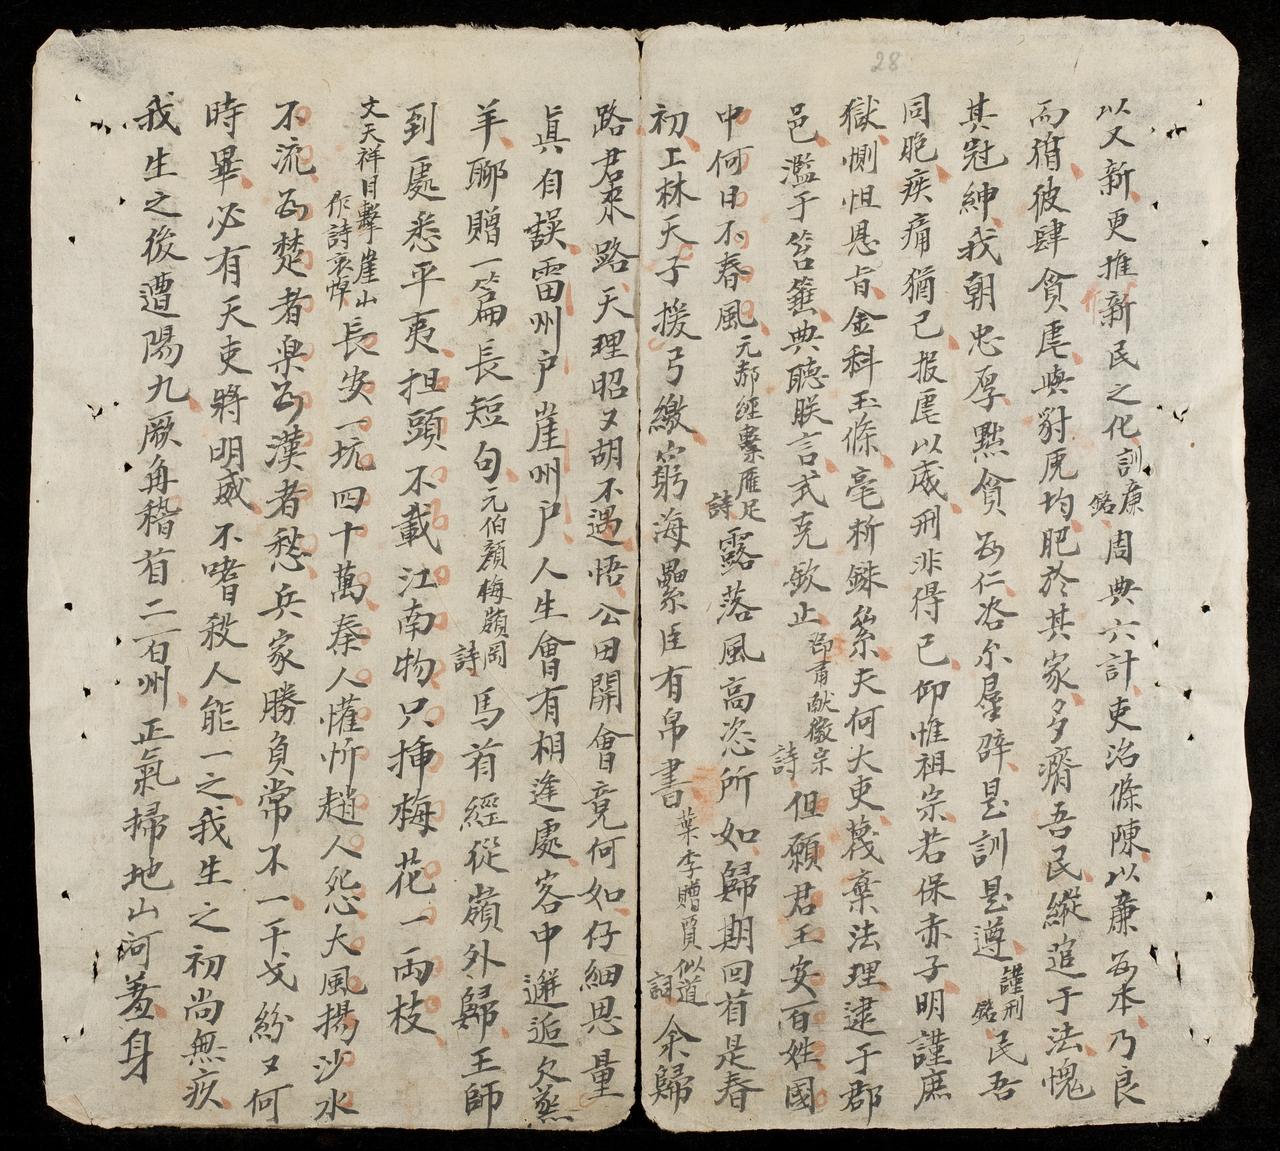 28
以又新更推新民之化訓廉銘周典六計吏治條陳以廉為本乃良
而猾彼肆貪虐與豺虎均肥於其家多瘠吾民縱逭于法愧
其冠紳我朝忠厚黜貪為仁咨尔羣辟是訓是遵謹刑銘民吾
同胞疾痛猶己报虐以威刑非得已仰惟祖宗若保赤子明謹庶
獄惻怛恩旨金科玉條毫析銖絫夫何大吏蔑棄法理逮于郡
邑濫于笞箠典聽朕言式克欽止邵甫献徽宗詩但願君王安百姓國
中何日不春風元郝經繫雁足詩露落風高恣所如歸期回首是春
初上林天子援弓繳窮海纍臣有帛書葉李贈賈似道詞余歸
路君來路天理昭又胡不遇悟公田開會竟何如仔細思量
真自誤雷州戶崖州戶人生會有相逢處客中邂逅欠蒸
羊聊贈一篇長短句元伯顏梅嶺岡詩馬首經從嶺外歸王師
到處悉平夷担頭不載江南物只揷梅花一兩枝
文天祥目擊崖山作詩哀悼長安一坑四十萬秦人懽忻趙人怨大風揚沙水
不流為楚者樂為漢者愁兵家勝負常不一干戈紛又何
時畢必有天吏將明威不嗜殺人能一之我生之初尚無疚
我生之後遭陽九厥角稽首二百州正氣掃地山河羞身